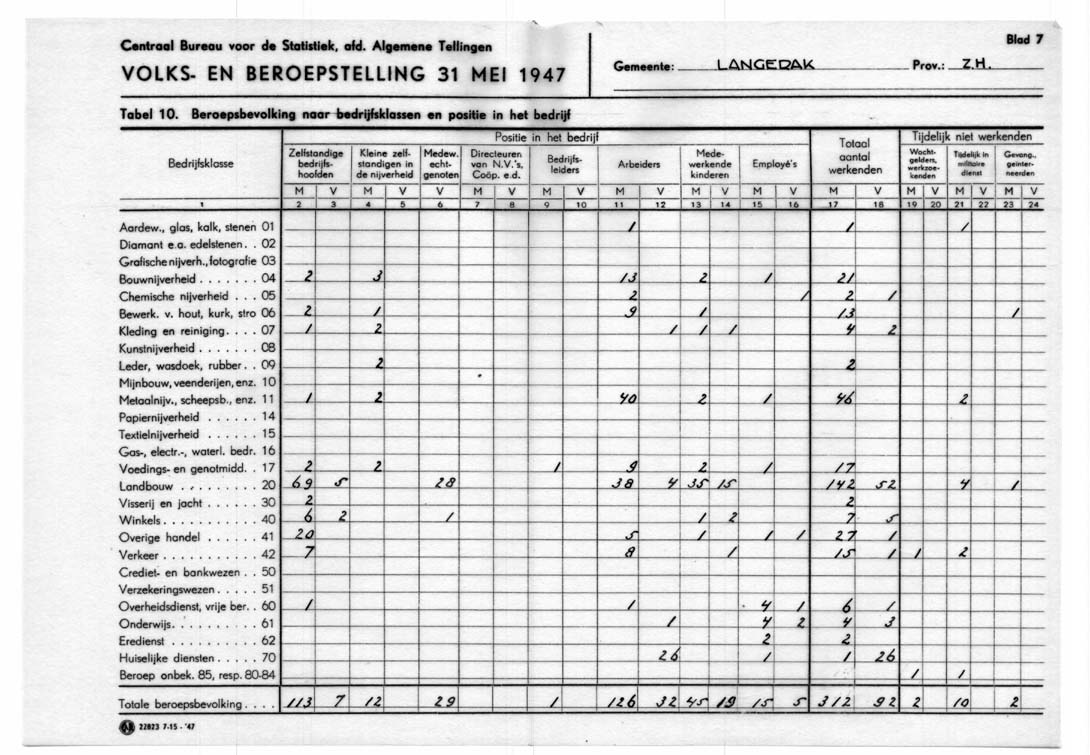 Centraal Bureau voor de Statistiek, afd. Algemene Tellingen
VOLKS- EN BEROEPSTELLING 31 MEI 1947
Gemeente: LANGERAK Prov.: Z.H.
Blad 7
Tabel 10. Beroepsbevolking naar bedrijfsklassen en positie in het bedrijf
Bedrijfsklasse
Positie in het bedrijf
Zelfstandige bedrijfs- hoofden
Kleine zelf- standigen in de nijverheid
Medew. echt- genoten
Directeuren van N.V.'s, Coöp. e.d.
Bedrijfs- leiders
Arbeiders
Mede- werkende kinderen
Employé's
Totaal aantal werkenden
Tijdelijk niet werkenden
Wacht- gelders, werkzoe- kenden
Tijdelijk in militaire dienst
Gevang., geinter- neerden
M V M V V M V M V M V M V M V M V M V M V M V
1 2 3 4 5 6 7 8 9 10 11 12 13 14 15 16 17 18 19 20 21 22 23 24
Aardew., glas, kalk, stenen 01 1 1 1
Diamant e.a. edelstenen. . 02
Grafische nijverh., fotografie 03
Bouwnijverheid . . . . . . . 04 2 3 13 2 1 21
Chemische nijverheid . . . 05 2 1 2 1
Bewerk. v. hout, kurk, stro 06 2 1 9 1 13 1
Kleding en reiniging. . . . 07 1 2 1 1 1 4 2
Kunstnijverheid . . . . . . . 08
Leder, wasdoek, rubber. . 09 2 2
Mijnbouw, veenderijen, enz. 10
Metaalnijv., scheepsb., enz. 11 1 2 40 2 1 46 2
Papiernijverheid . . . . . . 14
Textielnijverheid . . . . . . 15
Gas-, electr.-, waterl. bedr. 16
Voedings- en genotmidd. . 17 2 2 1 9 2 1 17
Landbouw . . . . . . . . . 20 69 5 28 38 4 35 15 142 52 4 1
Visserij en jacht . . . . . . 30 2 2
Winkels. . . . . . . . . . . 40 6 2 1 1 2 7 5
Overige handel . . . . . . 41 20 5 1 1 1 27 1
Verkeer . . . . . . . . . . . 42 7 8 1 15 1 1 2
Crediet- en bankwezen . . 50
Verzekeringswezen . . . . . 51
Overheidsdienst, vrije ber. . 60 1 1 4 1 6 1
Onderwijs. . . . . . . . . . 61 1 4 2 4 3
Eredienst . . . . . . . . . 62 2 2
Huiselijke diensten . . . . . 70 26 1 1 26
Beroep onbek. 85, resp. 80-84 1 1
Totale beroepsbevolking . . . . 113 7 12 29 1 126 32 45 19 15 5 312 92 2 10 2
22823 7-15 - '47